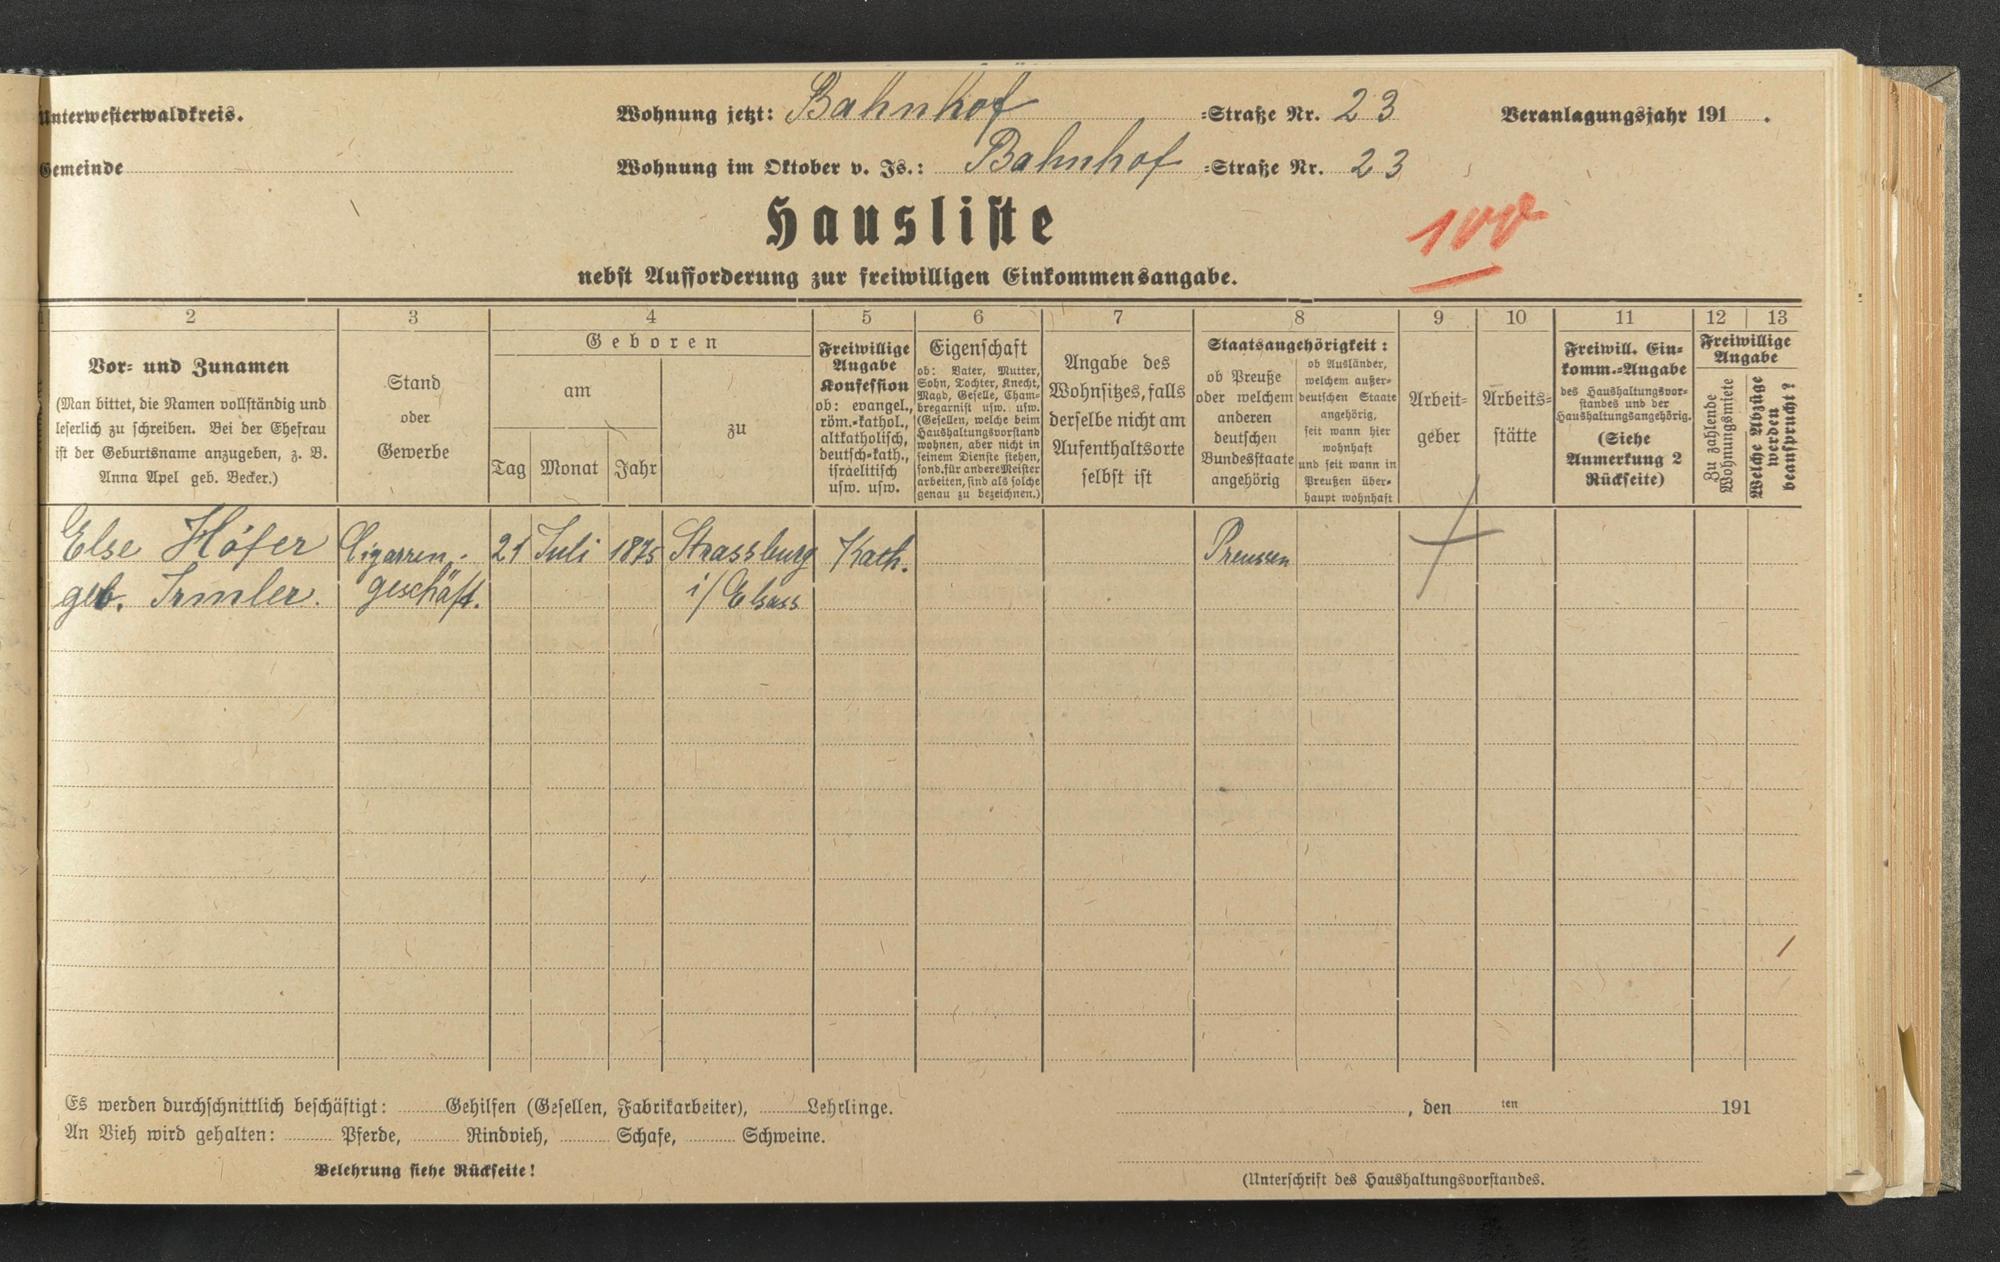 Unterwesterwaldkreis.
Wohnung jetzt: Bahnhof =Straße Nr. 23
Veranlagungsjahr 191 .
Gemeinde
Wohnung im Oktober v. Js.: Bahnhof =Straße Nr. 23
Hausliste
100
nebst Aufforderung zur freiwilligen Einkommensangabe.
2
3
4
5
6
7
8
9
10
11
12
13
Vor= und Zunamen
(Man bittet, die Namen vollständig und
leserlich zu schreiben. Bei der Ehefrau
ist der Geburtsname anzugeben, z. B.
Anna Apel geb. Becker.)
Stand
oder
Gewerbe
Geboren
am
Tag
Monat
Jahr
zu
Freiwillige
Angabe
Konfession
ob: evangel.,
röm.=kathol.,
altkatholisch,
deutsch=kath.,
israelitisch
usw. usw.
Eigenschaft
ob: Vater, Mutter,
Sohn, Tochter, Knecht,
Magd, Geselle, Cham=
bregarnist usw. usw.
(Gesellen, welche beim
Haushaltungsvorstand
wohnen, aber nicht in
seinem Dienste stehen,
sond. für andere Meister
arbeiten, sind als solche
genau zu bezeichnen.)
Angabe des
Wohnsitzes, falls
derselbe nicht am
Aufenthaltsorte
selbst ist
Staatsangehörigkeit:
ob Preuße
oder welchem
anderen
deutschen
Bundesstaate
angehörig
ob Ausländer,
welchem außer=
deutschen Staate
angehörig,
seit wann hier
wohnhaft
und seit wann in
Preußen über=
haupt wohnhaft
Arbeit=
geber
Arbeits=
stätte
Freiwill. Ein=
komm.=Angabe
des Haushaltungsvor=
standes und der
Haushaltungsangehörig.
(Siehe
Anmerkung 2
Rückseite)
Freiwillige
Angabe
Zu zahlende
Wohnungsmiete
Welche Abzüge
werden
beansprucht?
Else Höfer
Cigarren=
21 Juli 1875 Strassburg
Kath.
Preussen
geb. Irmler.
geschäft.
i/Elsass
Es werden durchschnittlich beschäftigt: Gehilfen (Gesellen, Fabrikarbeiter), Lehrlinge.
, den ten 191
An Vieh wird gehalten: Pferde, Rindvieh, Schafe, Schweine.
Belehrung siehe Rückseite!
(Unterschrift des Haushaltungsvorstandes.